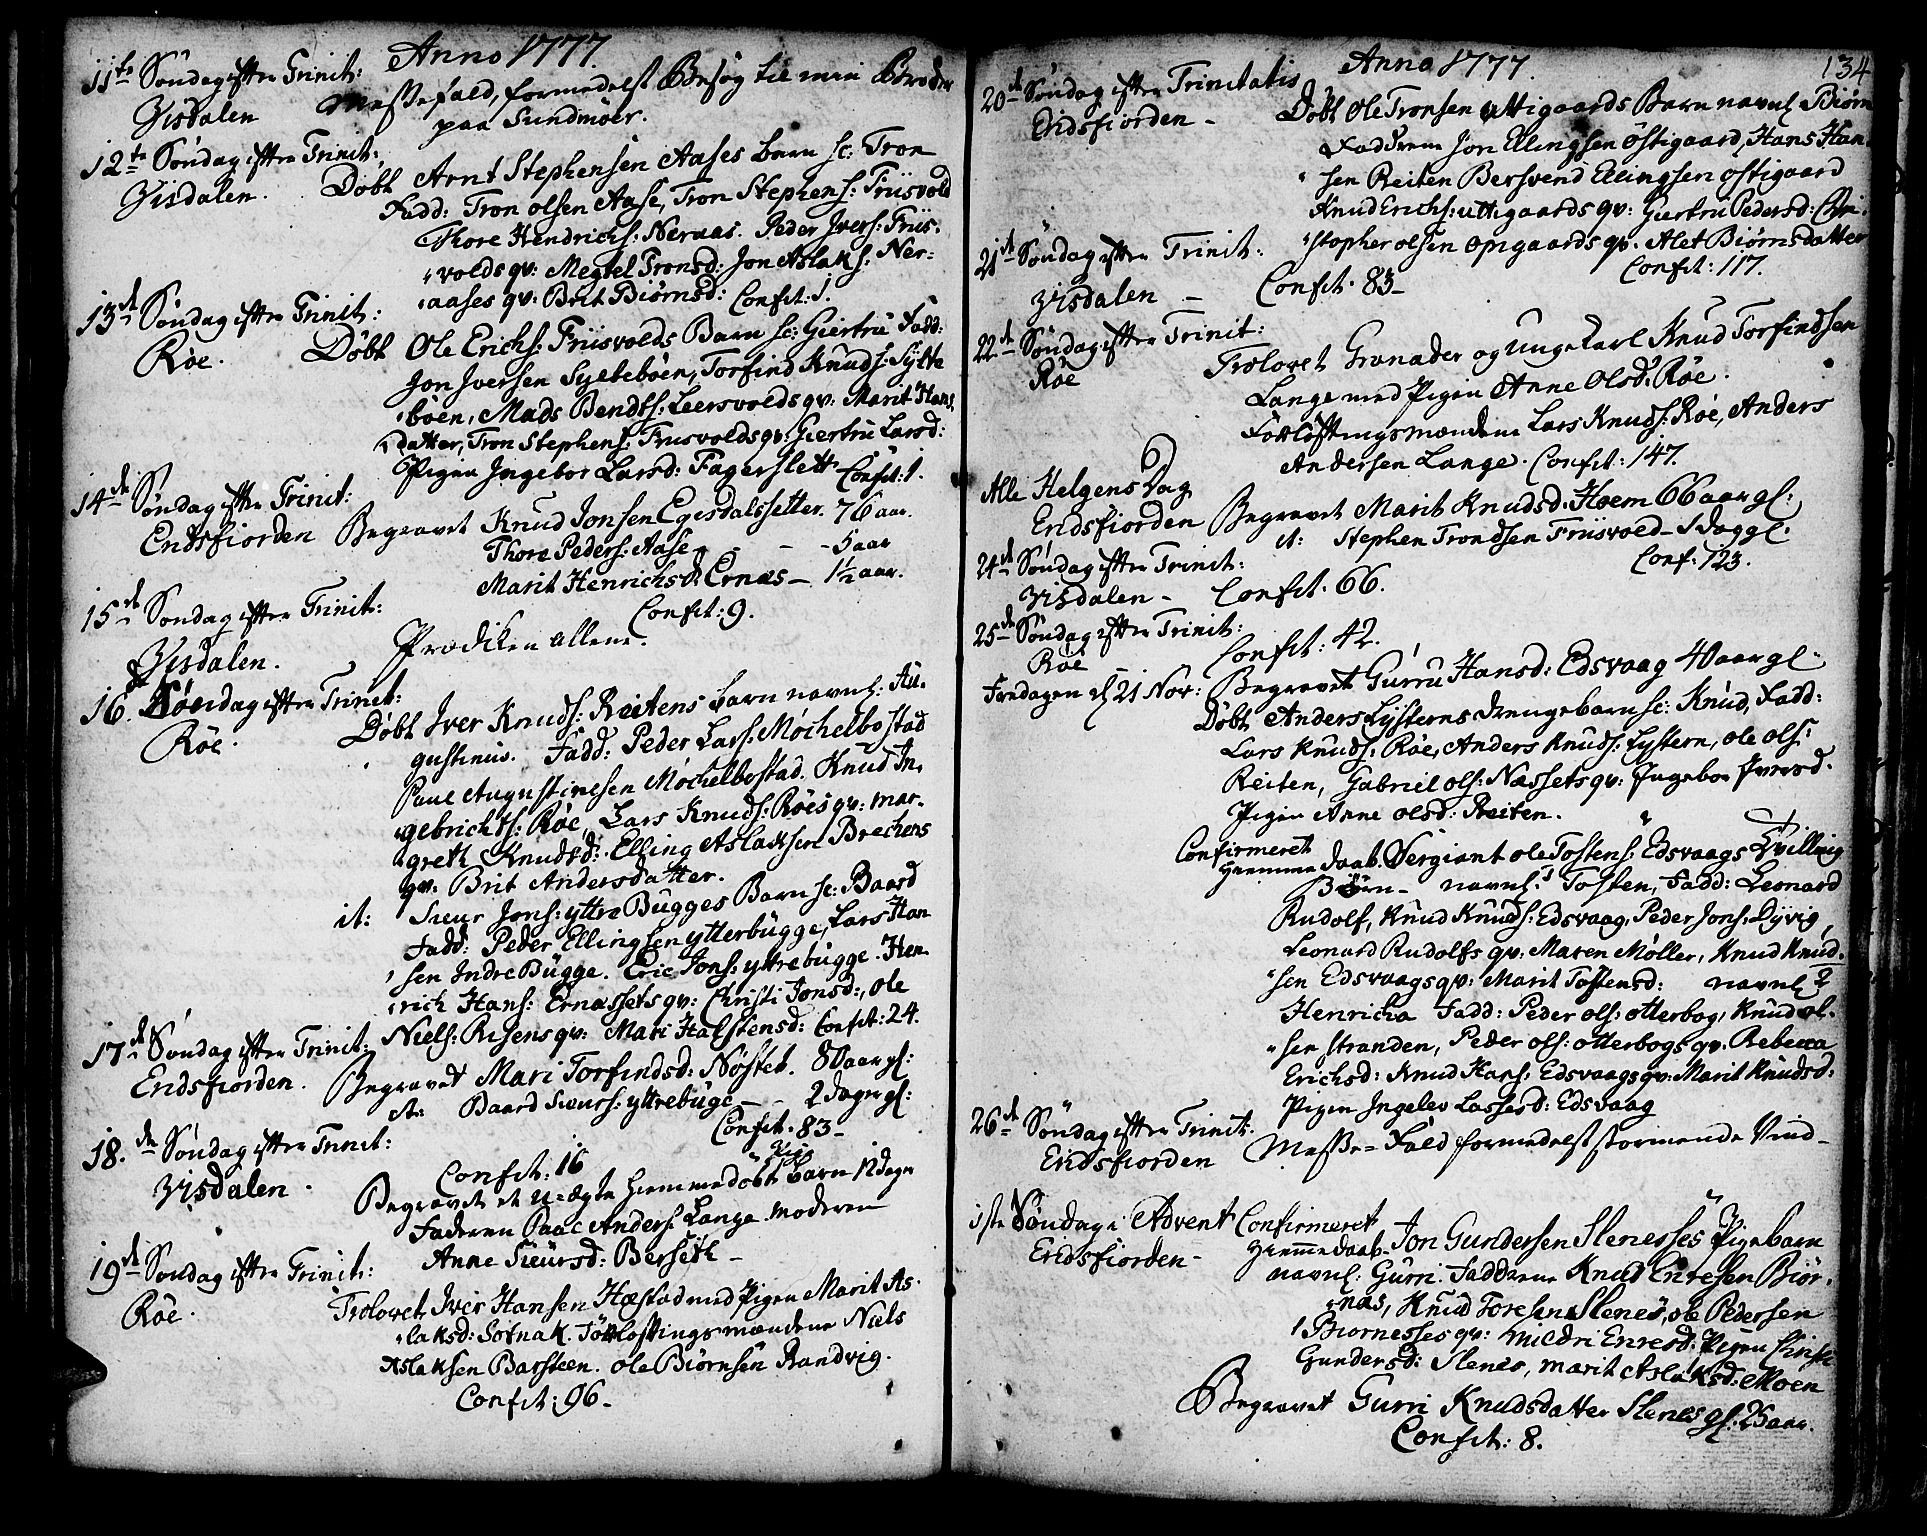 Anno 1777.
11te Søndag efter Trinit:
Messefald, formedelst Besøg til min Broder
Visdalen
paa Sundmöer.
12te Søndag efter Trinit:
Visdalen.
Døbt Arnt Stephensen Aases barn sc: Tron
Fadd: Tron olsen Aase, Tron Stephens: Friisvold
Thore Hendrichs: Neraas. Peder Ivers: Friis-
volds qv: Megtel Tronsd: Jon Aslaks: Ner-
aases qv: Brit Biørnsd: Confit: 1.
13de Søndag efter Trinit:
Røe.
Døbt Ole Erichs: Friisvolds Barn sc: Giertru Fadd:
Jon Iversen Syltebøen, Torfind Knuds: Sylte
bøen, Mads Bendts: Leersvolds qv: Marit Hans
datter, Tron Stephens: Friisvolds qv: Giertru Larsd:
Pigen Ingebor Larsd: Fagerslett Confit: 1.
14de Søndag efter Trinit:
Eridsfiorden
Begravet Knud Jonsen Egisdalssetter. 76 aar.
Thore Peders: Aase - - 5 aar
Marit Henrichsd: Ernæs - 1½ aar.
Confit: 9.
15de Søndag efter Trinit:
Visdalen.
Prædiken allene.
16de Søndag efter Trinit:
Røe.
Døbt Iver Knuds: Reitens barn navnl: Au-
gustinus. Fadd: Peder Lars: Møchelbostad
Paul Augustinesen Møchelbostad. Knud In-
gebrichts: Røe, Lars Knuds: Røes qv: Mar-
greth Knudsd: Elling Aslaksen Brechens
qv: Brit Andersdatter.
it: Sieur Jons: yttre Bugges Barn sc: Baard
Fadd: Peder Ellingsen ytterbugge, Lars Han
sen Indre Bugge. Eric Jons: yttrebugge. Hen
rich Hans: Ernæssets qv: Christi Jonsd:, ole
Niels: Risens qv: Mari Halstensd: Confit: 24.
17de Søndag efter Trinit:
Eridsfiorden.
Begravet Mari Torfindsd: Nøstet. 80 aar gl:
it: Baard Sieurs: yttrebuge - - 2 dager gl:
Confit: 83 -
18de Søndag efter Trinit:
Visdalen.
Confit: 16
Begravet et u-ægte hiemmedøbt Pige barn 12 dager
Faderen Paal Anders: Lange. Moderen
Anne Sieursd: Berseth -
19de Søndag efter Trinit:
Røe.
Trolovet Iver Hansen Hæstad med Pigen Marit As-
laksd: Sotnak. Forløftningsmændene Niels
Aslaksen Barsteen. ole Biørnsen Randvig.
Confit: 96 -
Anno 1777.
134
20de Søndag efter Trinitatis
Eridsfiorden -
Døbt Ole Tronsen uttigaards Barn navnl: Biørn
Fadderne Jon Ellingsen Østigaard, Hans Han
sen Reiten Bersvend Ellingsen østigaard
Knud Erichs: uttigaards qv: Giertru Pedersd: Chri-
stopher olsen opigaards qv: Alet Biørnsdatter
Confit: 117.
21de Søndag efter Trinit:
Visdalen -
Confit: 83 -
22de Søndag efter Trinit:
Røe
Trolovet Granader og unge Karl Knud Torfindsen
Lange med Pigen Anne Olsd: Røe.
Forløftningsmændene Lars Knuds: Røe, Anders
Andersen Lange. Confit: 147.
Alle Helgens Dag
Eridsfiorden
Begravet Marit Knudsd: Hoem 66 aar gl:
it: Stephen Trondsen Friisvold - 1 dag gl.
Conf: 123.
24de Søndag efter Trinit:
Visdalen -
Confit: 66.
25de Søndag efter Trinit:
Røe
Confit: 42.
Begravet Gurru Hansd: Edsvaag 40 aar gl.
Fredagen d 21 Nov:
Døbt Anders Lysterns drengebarn sc: Knud, Fadd:
Lars Knuds: Røe, Anders Knuds: Lystern, ole ols:
Reiten, Gabriel ols: Næssets qv: Ingebor Iversd.
Pigen Anne olsd: Reiten.
Confirmeret
hiemme daab. Sergiant ole Tostens: Edsvaags Tvilling
Børn - navnl: 1 Tosten, Fadd: Leonard
Rudolf, Knud Knuds: Edsvaag, Peder Jons: Dyvig,
Leonard Rudolfs qv: Maren Møller, Knud Knud-
sen Edsvaags qv: Marit Tostensd: navnl: 2
Henricha Fadd: Peder ols: otterbog, Knud ol-
sen stranden, Peder ols: otterbogs qv: Rebecca
Erichsd: Knud Hans: Edsvaags qv: Marit Knudsd:
Pigen Ingelev Lassesd: Edsvaag
26de Søndag efter Trinit:
Eridsfiorden
Messe-Fald formedelst stormende Vind -
1ste Søndag i Advent
Eridsfiorden -
Confirmeret
hiemmedaab. Jon Gundersen Slenesses Pigebarn
navnl: Gurri. Fadderne Knud Enresen Biør-
næs, Knud Toresen Slenes, ole Pedersen
Biørnesses qv: Mildri Enresd: Pigen Kirsti
Gundersd: Slenes, Marit Aslaksd: Moen
Begravet Gurri Knudsdatter Slenes gl. 25 aar.
Confit: 8.